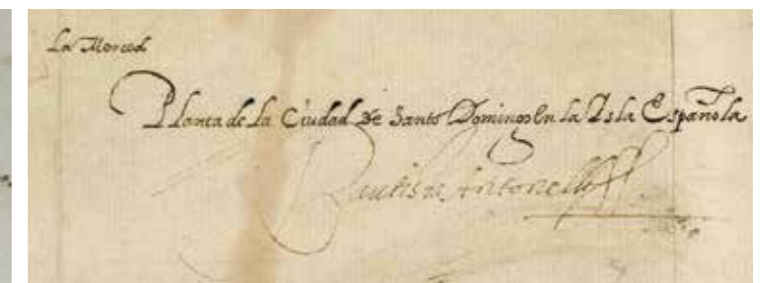 La Merced
Planta de la Ciudad de Santo Domingo En la Isla Española
Bautista Antonelli